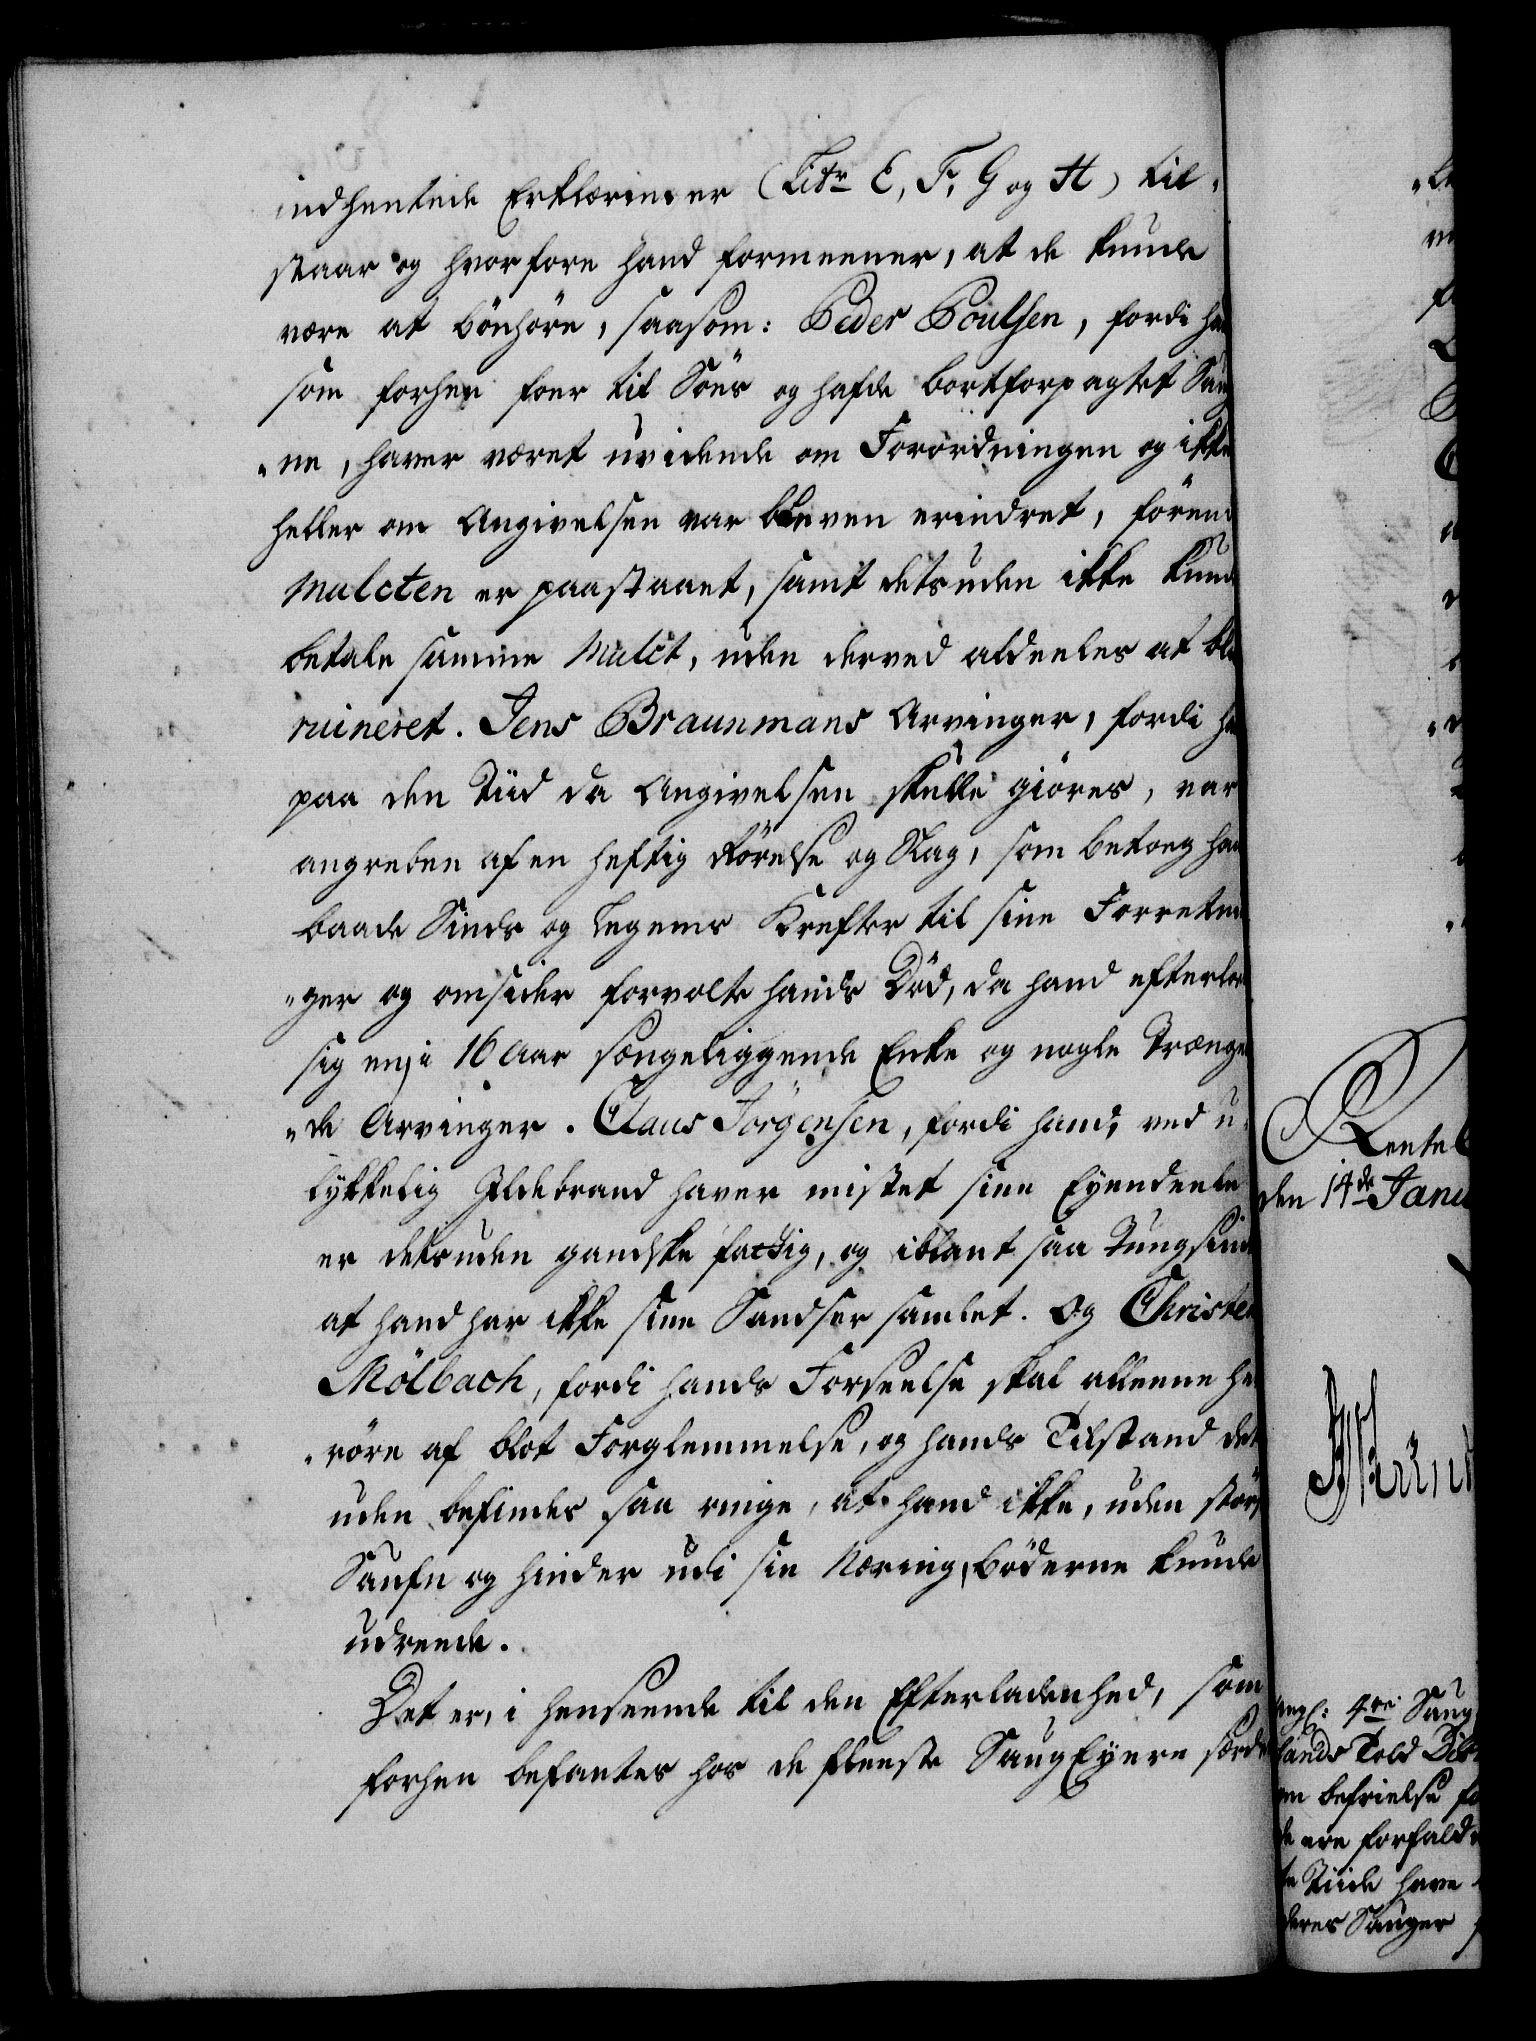 indhentede Erklæringer (Litr E, F, G og H) til-
staar og hvorfore hand formeener, at de kunde
være at bönhöre, saasom: Peder Poulsen, fordi ha
som forhen foer til Söes og hafde bortforpagtet Sau
"ne, haver været uvidende om Forordningen og ikke
heller om Angivelsen var bleven erindret, förend
Mulcten er paastaaet, samt detsuden ikke kund
betale samme Mulct, uden derved aldeeles at bl
ruineret. Jens Braunmans Arvinger, fordi ha
paa den Tiid da Angivelsen skulle giöres, var
angreben af en heftig Rörelse og Slag, som betoeg ha
baade Sinds og Legems Kræfter til sine Forretni
"ger og omsider forvolte hands Död, da hand efterlod
sig en i 16 Aar sængeliggende Enke og nogle Trænge
"de Arvinger. Claus Jörgensen, fordi hand, ved u-
lykkelig Ildebrand haver mistet sine Eyendeele
er detsuden gandske fattig, og iblant saa Tungsind
at hand har ikke sine Sandser samlet. Og Christen
Mölbach, fordi hands Forseelse skal alleene he
"röre af blot Forglemmelse, og hands Tilstand det
uden befindes saa ringe, at hand ikke, uden störs
Saufn og hinder udi sin Næring, böderne kunde
udreede.
Det er, i henseende til den Efterladenhed, som
forhen befantes hos de fleeste SaugEyere særde
Rentek
den 14de Janu
4re Saug
lands Told Dist
om befrielse fo
de ere forfald
te Tiide have
deres Sauger